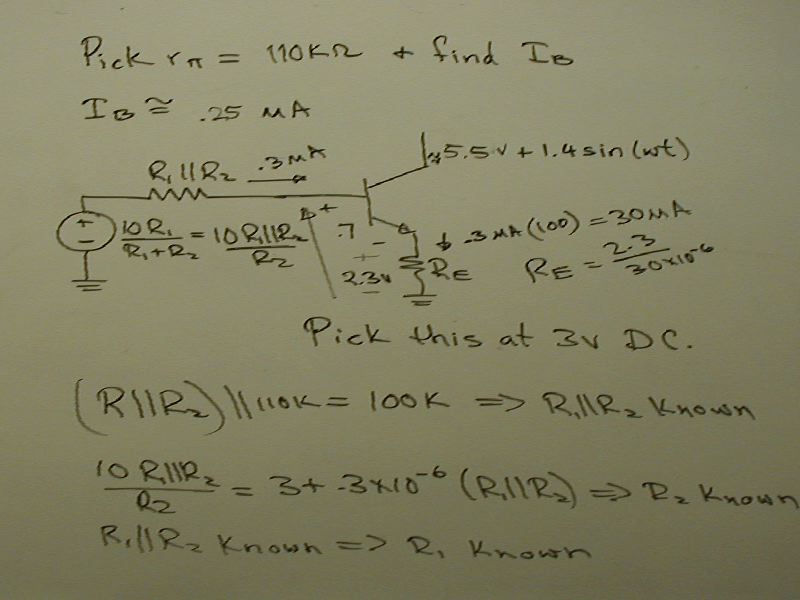 Pick rπ = 110KΩ + find IB
IB ≅ .25 MA
R1||R2 .3MA
5.5v + 1.4 sin(wt)
+
−
10R1/(R1+R2) = 10R1||R2/R2
+
.7
−
.3MA(100) = 30MA
+
2.3v
−
RE
RE = 2.3/30×10^-6
Pick this at 3v DC.
(R||R2)||110K = 100K => R1||R2 Known
10 R1||R2/R2 = 3 + .3×10^-6 (R1||R2) => R2 Known
R1||R2 Known => R1 Known